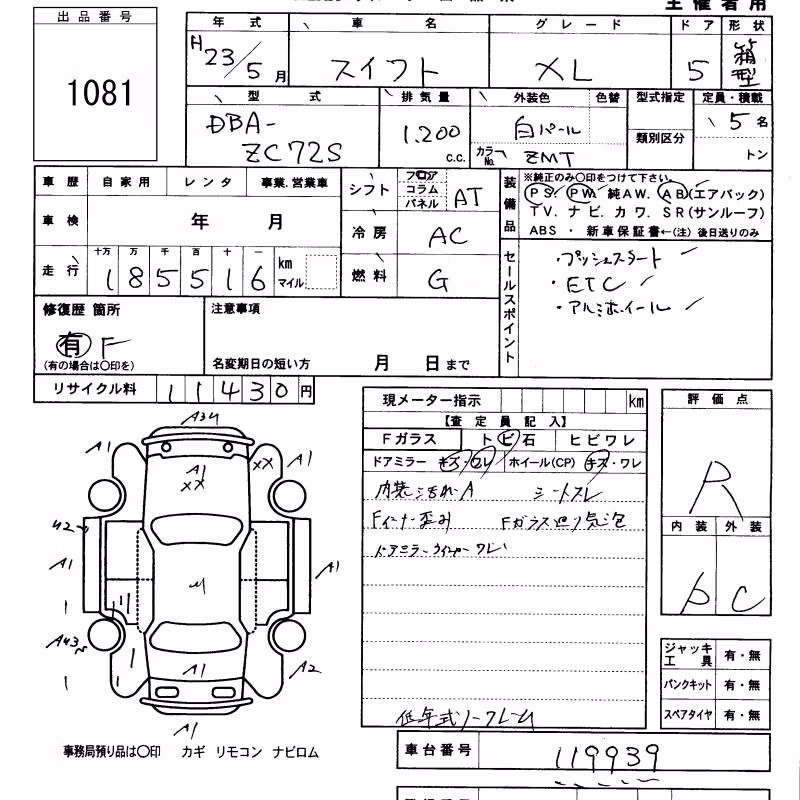 主催者用
出品番号
1081
年式 車名 グレード ドア 形状
H23/5月 スイフト XL 5 箱型
型式 排気量 外装色 色替 型式指定 定員・積載
DBA-ZC72S 1.200 c.c. 白パール 類別区分 5名
カラーNo. ZMT トン
車歴 自家用 レンタ 事業.営業車
シフト フロア コラム パネル AT
装備品 ※純正のみ〇印をつけて下さい。
PS. PW. 純AW. AB(エアバック)
TV. ナビ. カワ. SR(サンルーフ)
ABS ・ 新車保証書←(注) 後日送りのみ
車検 年 月
冷房 AC
走行 十万 万 千 百 十 一
185516 km マイル
燃料 G
セールスポイント
・プッシュスタート
・ETC
・アルミホイール
修復歴 箇所
有 F
(有の場合は〇印を)
注意事項
名変期日の短い方 月 日まで
リサイクル料 11430円
現メーター指示 km
【査定員記入】
Fガラス トビ石 ヒビワレ
ドアミラー キズ・ワレ ホイール(CP) キズ・ワレ
内装汚れA シートスレ
Fインナー歪み Fガラス廻り気泡
ドアミラーウインカーワレ
低年式ノークレーム
評価点
R
内装 外装
D C
ジャッキ工具 有・無
パンクキット 有・無
スペアタイヤ 有・無
A34
A1
A1
A1
XX
XX
42
A1
A1
A43
A2
A1
A1
事務局預り品は〇印 カギ リモコン ナビロム
車台番号 119939